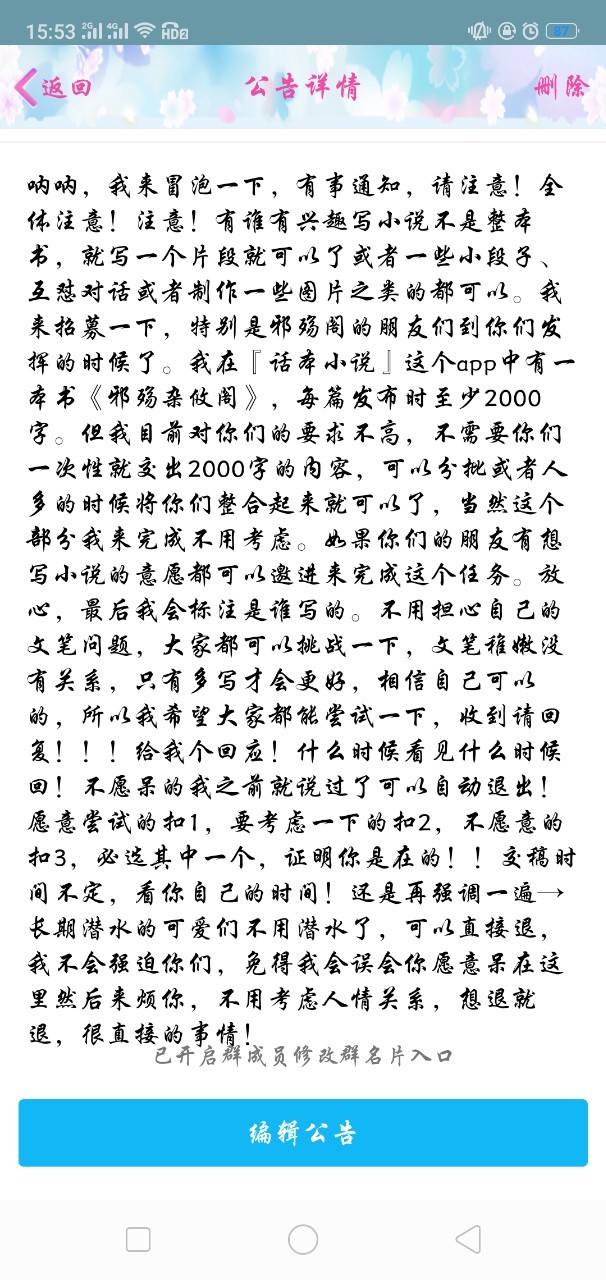 15:53 2G 4G HD2 87
返回 公告详情 删除
呐呐，我来冒泡一下，有事通知，请注意！全
体注意！注意！有谁有兴趣写小说不是整本
书，就写一个片段就可以了或者一些小段子、
互怼对话或者制作一些图片之类的都可以。我
来招募一下，特别是邪殇阁的朋友们到你们发
挥的时候了。我在『话本小说』这个app中有一
本书《邪殇杂攸阁》，每篇发布时至少2000
字。但我目前对你们的要求不高，不需要你们
一次性就交出2000字的内容，可以分批或者人
多的时候将你们整合起来就可以了，当然这个
部分我来完成不用考虑。如果你们的朋友有想
写小说的意愿都可以邀进来完成这个任务。放
心，最后我会标注是谁写的。不用担心自己的
文笔问题，大家都可以挑战一下，文笔稚嫩没
有关系，只有多写才会更好，相信自己可以
的，所以我希望大家都能尝试一下，收到请回
复！！！给我个回应！什么时候看见什么时候
回！不愿呆的我之前就说过了可以自动退出！
愿意尝试的扣1，要考虑一下的扣2，不愿意的
扣3，必选其中一个，证明你是在的！！交稿时
间不定，看你自己的时间！还是再强调一遍→
长期潜水的可爱们不用潜水了，可以直接退，
我不会强迫你们，免得我会误会你愿意呆在这
里然后来烦你，不用考虑人情关系，想退就
退，很直接的事情！
已开启群成员修改群名片入口
编辑公告